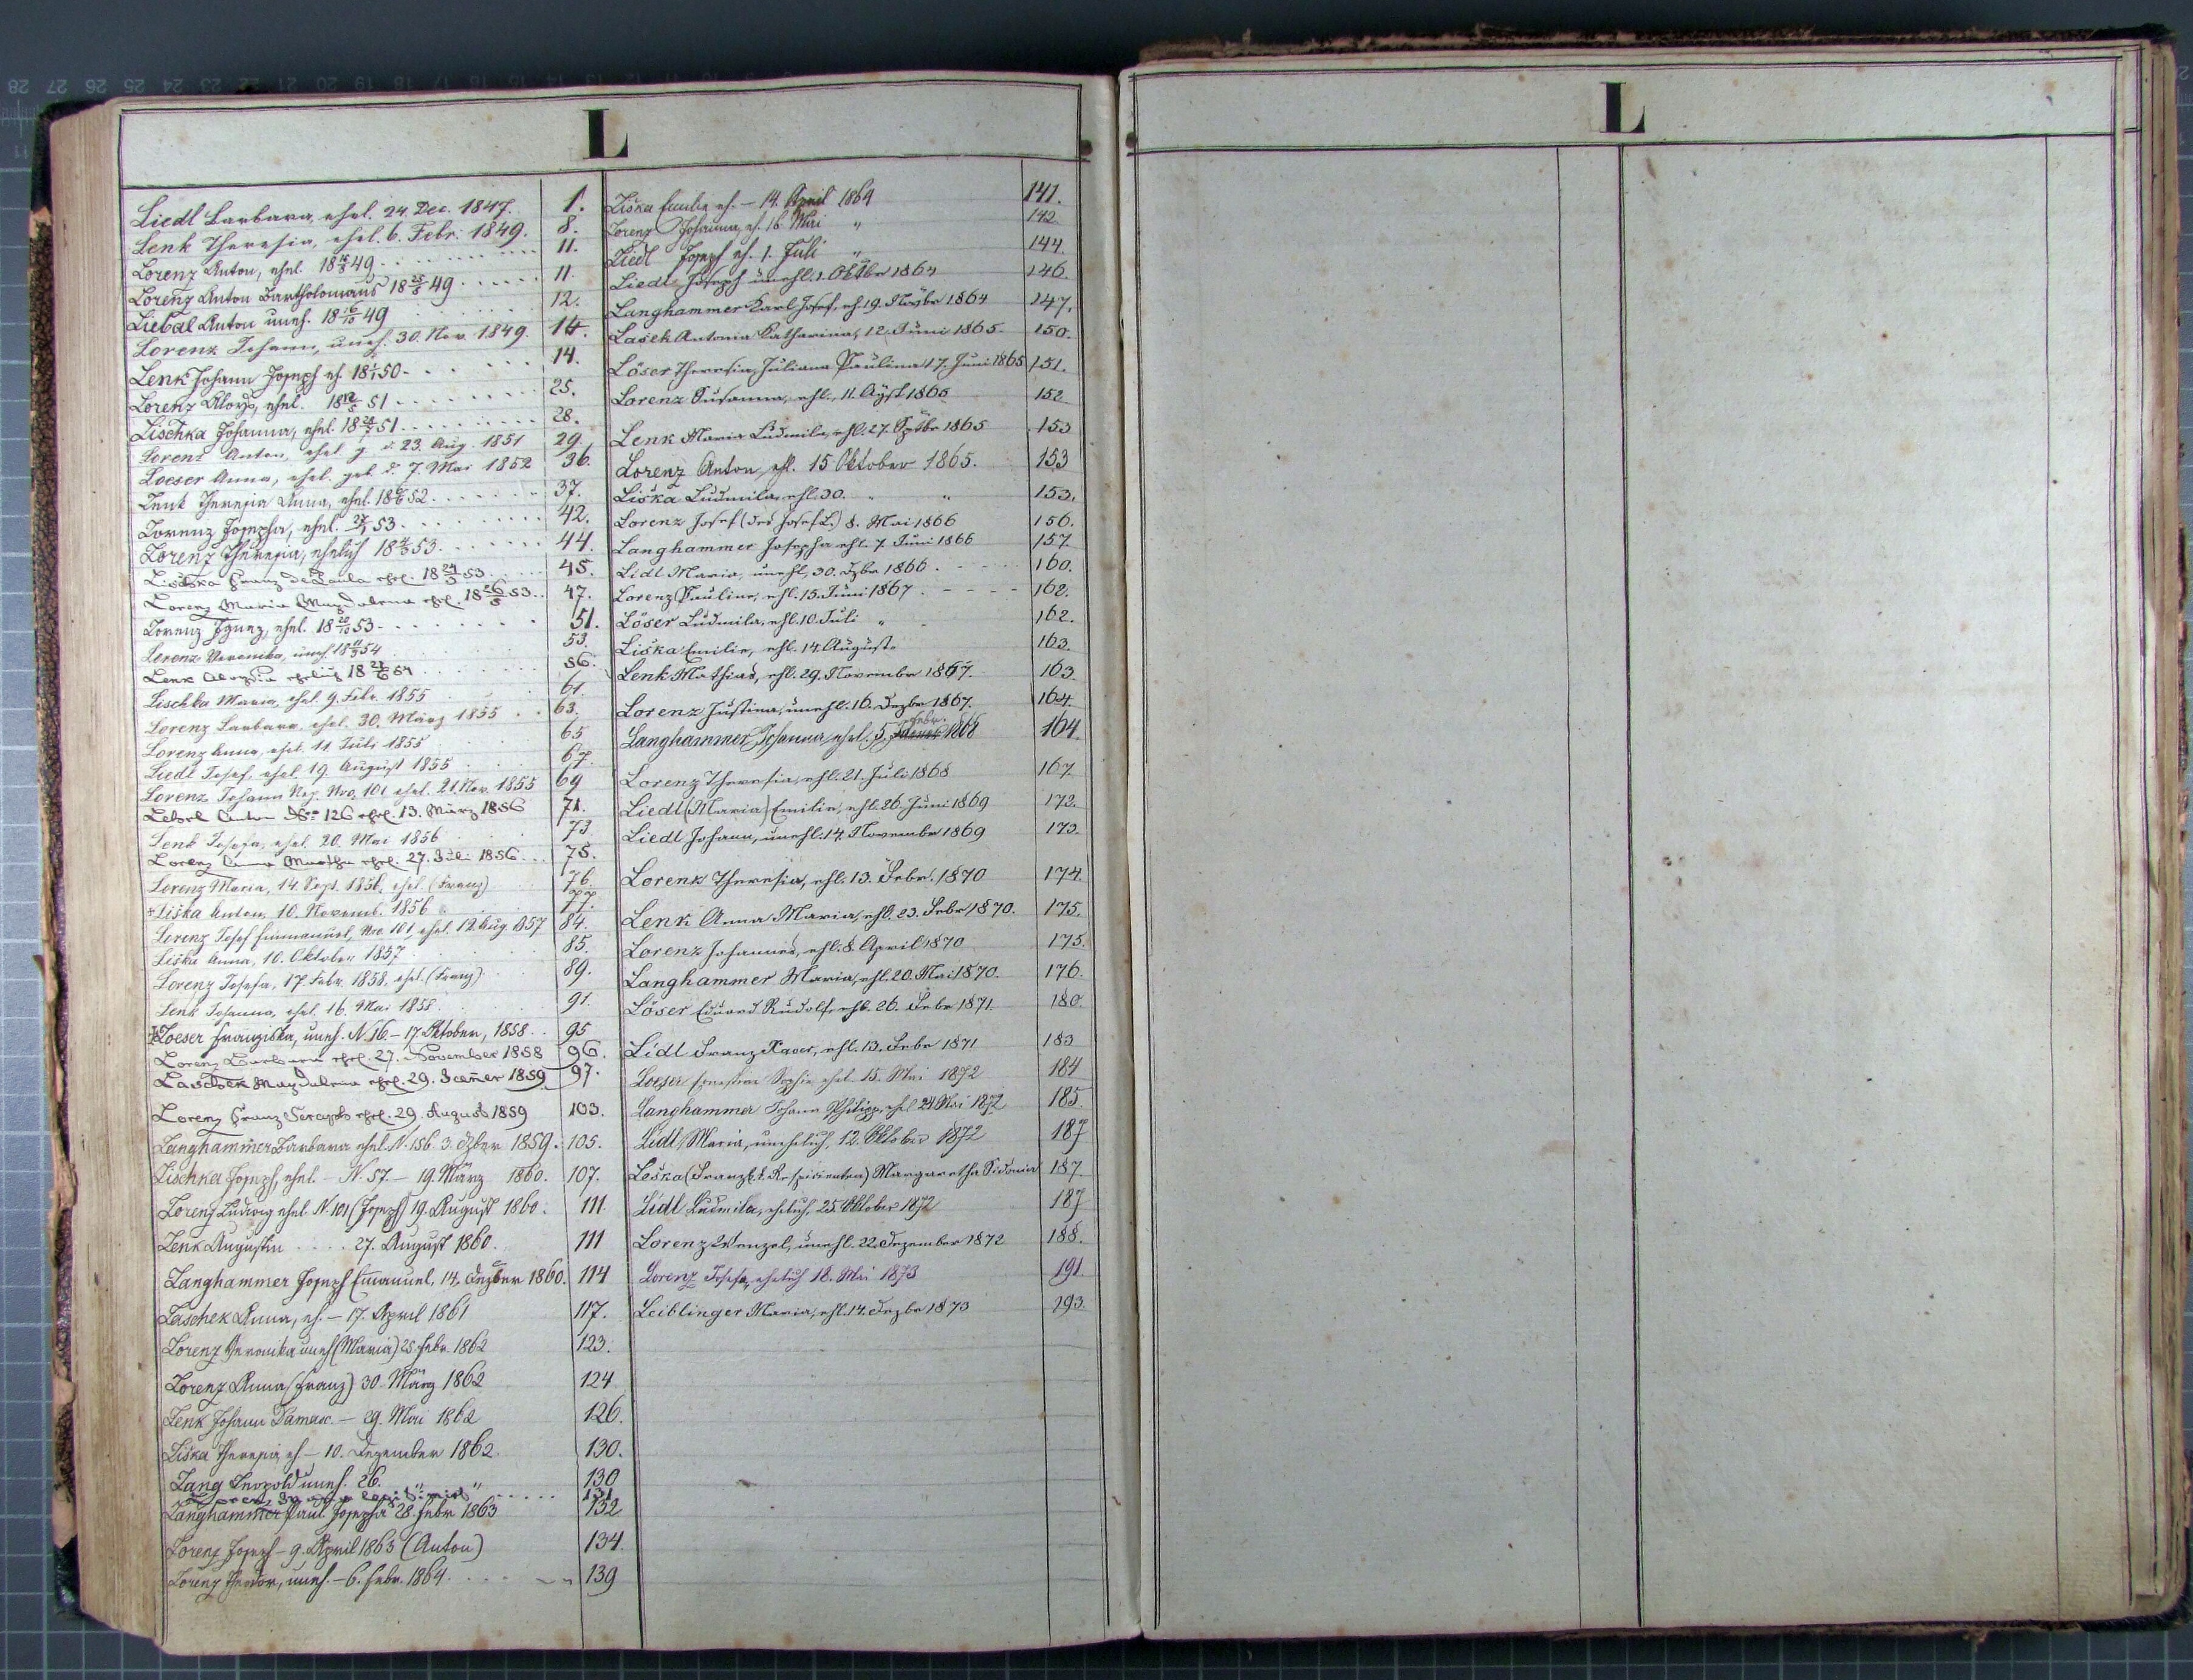 L
Liedl Barbara, ehel. 24. Dec. 1847. 1.
Lenk Theresia, ehel. 6. Febr. 1849. 8.
Lorenz Anton, ehel. 18 49 11.
Lorenz Anton Bartholomäus 18 25/8 49 11.
Liebal Anton uneh. 18 16/10 49 12.
Lorenz Johann, uneh. 30. Nov. 1849. 14.
Lenk Johann Joseph eh. 18 1/1 50 14.
Lorenz Aloys, ehel. 18 51 25.
Lischka Johanna, ehel. 18 51 28.
Lorenz Anton, ehel. g. d. 23. Aug. 1851 29.
Loeser Anna, ehel. geb. d. 7. Mai 1852 36.
Lenk Theresia Anna, ehel. 18 52 37.
Lorenz Josepha, ehel. 53 42.
Lorenz Theresia, ehelich 18 53 44.
Lischka Franz de Paula ehel. 18 24/3 53 45.
Lorenz Maria Magdalena ehel. 18 26/5 53 47.
Lorenz Ignaz, ehel. 18 20/10 53 51.
Lorenz Veronika, uneh. 18 54 53.
Lenk Aloysia ehelich 18 54 56.
Lischka Maria, ehel. 9. Febr. 1855 61.
Lorenz Barbara, ehel. 30. März 1855 63.
Lorenz Anna, ehel. 11. Juli 1855 65
Liedl Josef, ehel. 19. August 1855 67.
Lorenz Johann Nep. Nro. 101 ehel. 21. Nov. 1855 69
Anton Nro 126 ehel. 13. März 1856 71.
Lenk Josefa, ehel. 20. Mai 1856 73
Lorenz Anna Martha ehel. 27. Juli 1856 75.
Lorenz Maria, 14. Sept. 1856, ehel. (Franz) 76.
Liška Anton, 10. Novemb. 1856 77.
Lorenz Josef Emmanuel, Nro. 101, ehel. 12. Aug. 1857 84.
Liška Anna, 10. Oktober 1857 85.
Lorenz Josefa, 17. Febr. 1858, ehel. (Franz) 89.
Lenk Johanna, ehel. 16. Mai 1858 91.
Loeser Franziska, uneh. N. 16 – 17. Oktober, 1858 95
Lorenz Barbara ehel. 27. November 1858 96.
Laschek Magdalena ehel. 29. Jänner 1859 97.
Lorenz Franz Seraph ehel. 29. August 1859 103.
Langhammer Barbara ehel. N. 156 3. Dzber 1859. 105.
Lischka Joseph, ehel. – N. 57. – 19. März 1860. 107.
Lorenz Ludwig ehel. N. 101 (Joseph) 19. August 1860. 111.
Lenk Augustin 27. August 1860. 111
Langhammer Joseph Emanuel, 14. Dezber 1860. 114
Laschek Anna, eh. – 17. April 1861 117.
Lorenz Veronika uneh (Maria) 25. Febr. 1862 123.
Lorenz Anna (Franz) 30. März 1862 124
Lenk Johann Damasc. – 29. Mai 1862 126.
Liška Theresia, eh. – 10. Dezember 1862 130.
Lang Leopold uneh. 26. " " 130
Lorenz 131
Langhammer Paul. Josepha 28. Febr 1863 132
Lorenz Joseph – 9. April 1863 (Anton) 134.
Lorenz Theodor, uneh. – 6. Febr. 1864. 139
Liška Emilia eh. – 14. April 1864 141.
Lorenz Johanna, eh. 16. Mai " 142.
Liedl Joseph eh. 1. Juli " 144.
Liedl Joseph unehl. 1. Oktbr 1864 146.
Langhammer Karl Josef, eh. 19. Novbr 1864 147.
Lašek Antonia Katharina, 12. Juni 1865 150.
Löser Theresia Juliana Paulina 17. Juni 1865 151.
Lorenz Susanna, ehl., 11. Augst 1865 152
Lenk Maria Ludmila, ehl. 27. Sptbr 1865 153
Lorenz Anton, ehl. 15 Oktober 1865. 153
Liška Ludmila, ehl. 30. " " 153.
Lorenz Josef (des Josef L.) 8. Mai 1866 156.
Langhammer Josepha ehl. 7. Juni 1866 157.
Lidl Maria, unehl. 30. Dzbr 1866 160.
Lorenz Pauline, ehl. 15. Juni 1867 162.
Löser Ludmila, ehl. 10. Juli " 162.
Liška Emilie, ehl. 14. August 163.
Lenk Mathias, ehl. 29. November 1867. 163
Lorenz Justina, unehl. 16. Dezbr 1867. 164.
Langhammer Johanna, ehel. 5. Febr. 1868 164.
Lorenz Theresia, ehl. 21. Juli 1868 167
Liedl (Maria) Emilie, ehl. 26. Juni 1869 172.
Liedl Johann, unehl. 14. November 1869 173.
Lorenz Theresia, ehl. 13. Febr. 1870 174.
Lenk Anna Maria, ehl. 23. Febr 1870. 175.
Lorenz Johannes, ehl. 8. April 1870 175.
Langhammer Maria, ehl. 20. Mai 1870. 176.
Löser Eduard Rudolf, ehl. 26. Febr 1871. 180.
Lidl Franz Xaver, ehl. 13. Febr 1871 183
Loeser Ernestine Sophie ehel. 15. Mai 1872 184
Langhammer Johann Philipp, ehel. 24 Mai 1872 185.
Lidl Maria, unehelich, 12. Oktober 1872 187
Leška (Franz k. k. Respicienten) Margaretha Sidonia 187
Lidl Ludmila, ehelich, 25. Oktober 1872 187
Lorenz Wenzel, unehl. 22. Dezember 1872 188.
Lorenz Josefa, ehelich 18. Mai 1873 191.
Leiblinger Maria, ehl. 14. Dezbr 1873 193.
L